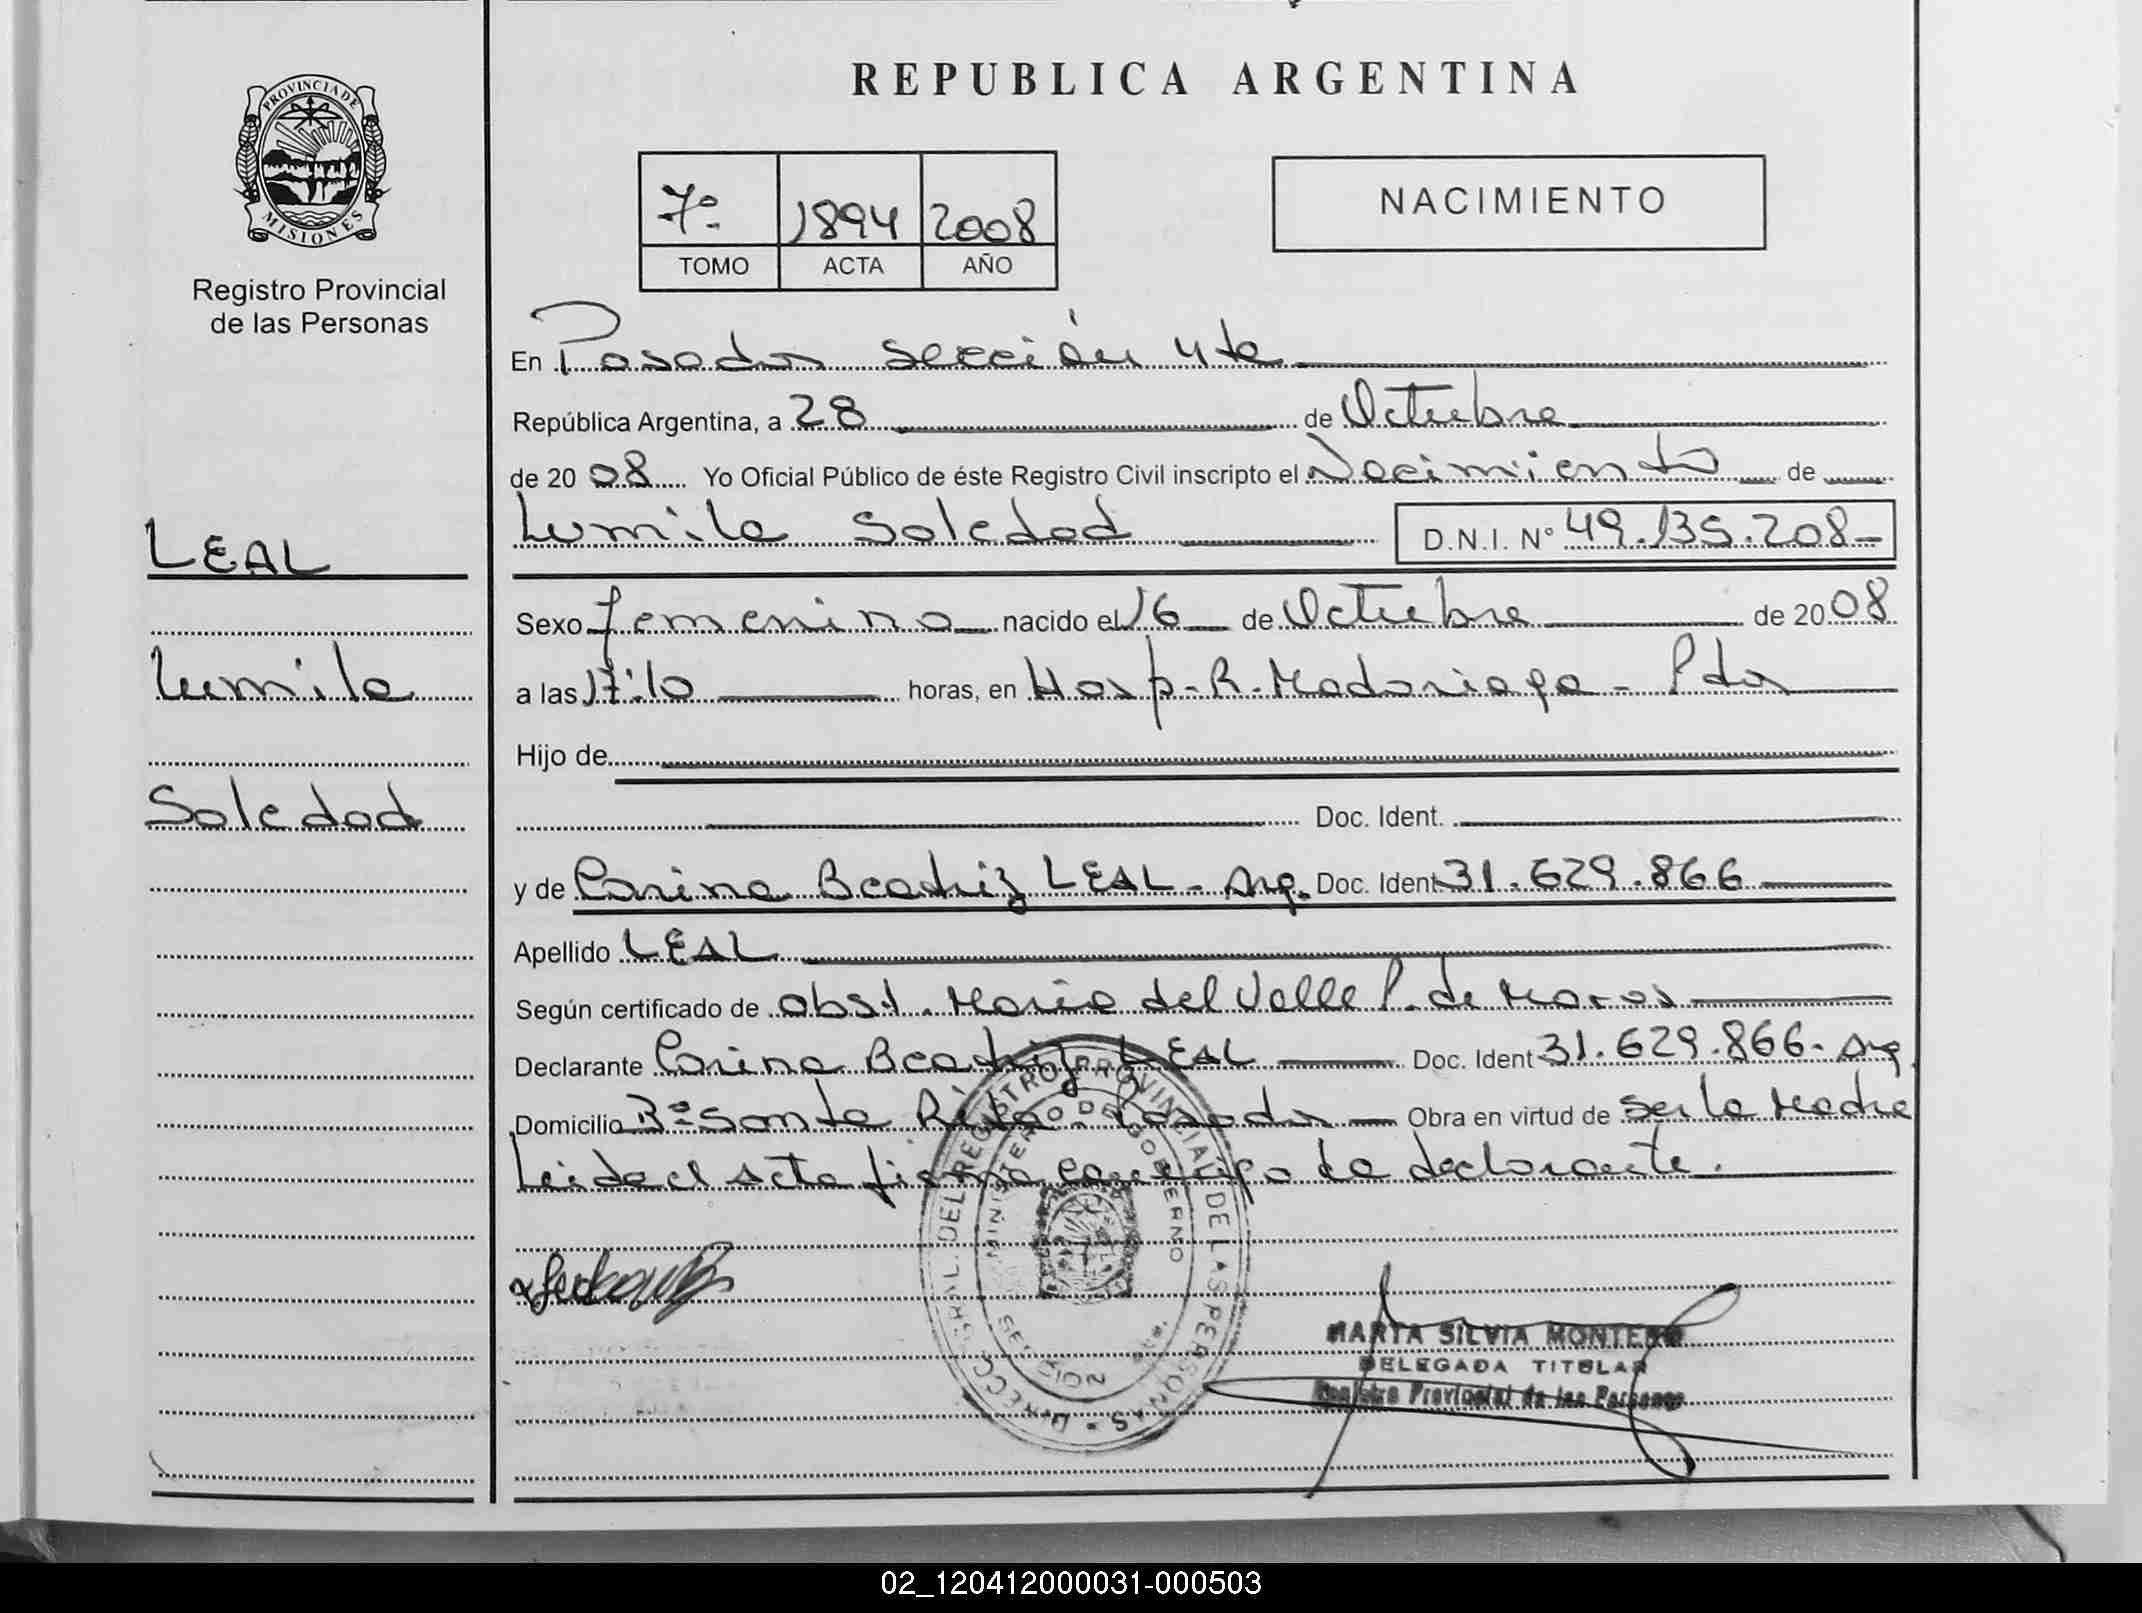 REPUBLICA ARGENTINA
PROVINCIA DE
MISIONES
Registro Provincial
de las Personas
7º 1894 2008
TOMO ACTA AÑO
NACIMIENTO
En Posadas sección 4ta
República Argentina, a 28 de Octubre
de 20 08 Yo Oficial Público de éste Registro Civil inscripto el Nacimiento de
Lumila Soledad D.N.I. Nº 49.135.208-
LEAL
Lumila
Soledad
Sexo femenino nacido el 16 de Octubre de 20 08
a las 17:10 horas, en Hosp. R. Madariaga - Pdas
Hijo de
Doc. Ident.
y de Carina Beatriz LEAL - Arg. Doc. Ident 31.629.866
Apellido LEAL
Según certificado de obst. Maria del Valle P. de
Declarante Carina Beatriz LEAL Doc. Ident 31.629.866- Arg.
Domicilio Bº Santa Rita - Posadas Obra en virtud de ser la Madre
Leida el acta firma conmigo la declarante.
DIRECC. GRAL. DEL REGISTRO PROVINCIAL DE LAS PERSONAS
MINISTERIO DE GOBIERNO
SECCION
MARTA SILVIA MONTERO
DELEGADA TITULAR
Registro Provincial de las Personas
02_120412000031-000503